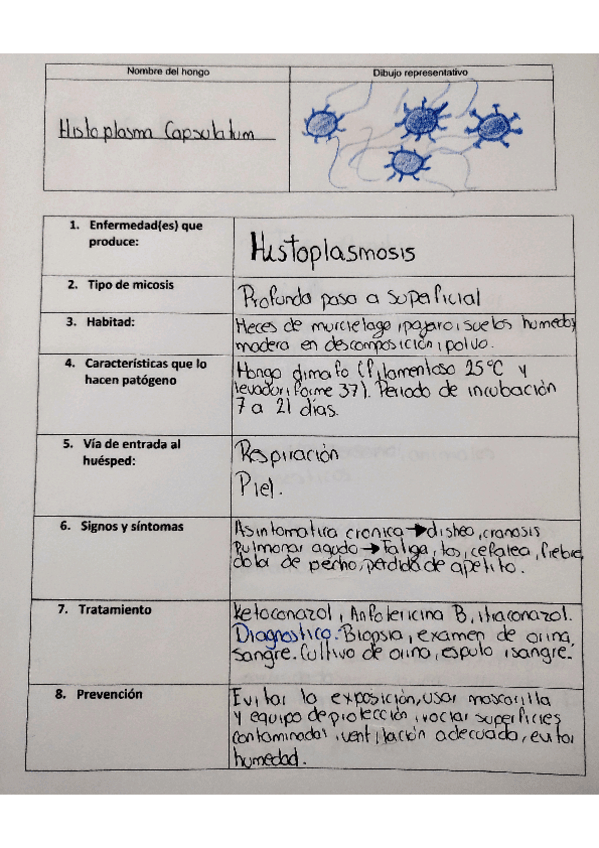 Nombre del hongo
Dibujo representativo
Histoplasma Capsulatum
1. Enfermedad(es) que
produce:
Histoplasmosis
2. Tipo de micosis
Profunda pasa a superficial
3. Habitad:
Heces de murcielago, pajaro, suelos humedos,
madera en descomposición, polvo.
4. Características que lo
hacen patógeno
Hongo dimafo (filamentoso 25°C y
levaduriforme 37). Periodo de incubación
7 a 21 días.
5. Vía de entrada al
huésped:
Respiración
Piel.
6. Signos y síntomas
Asintomatica cronica → disnea, cianosis
Pulmonar agudo → Fatiga, tos, cefalea, fiebre,
dolor de pecho, perdida de apetito.
7. Tratamiento
Ketoconazol, Anfotericina B, itraconazol.
Diagnostico: Biopsia, examen de orina,
sangre. Cultivo de orina, esputo, sangre.
8. Prevención
Evitar la exposición, usar mascarilla
y equipo de protección, rociar superficies
contaminadas, ventilación adecuada, evitar
humedad.